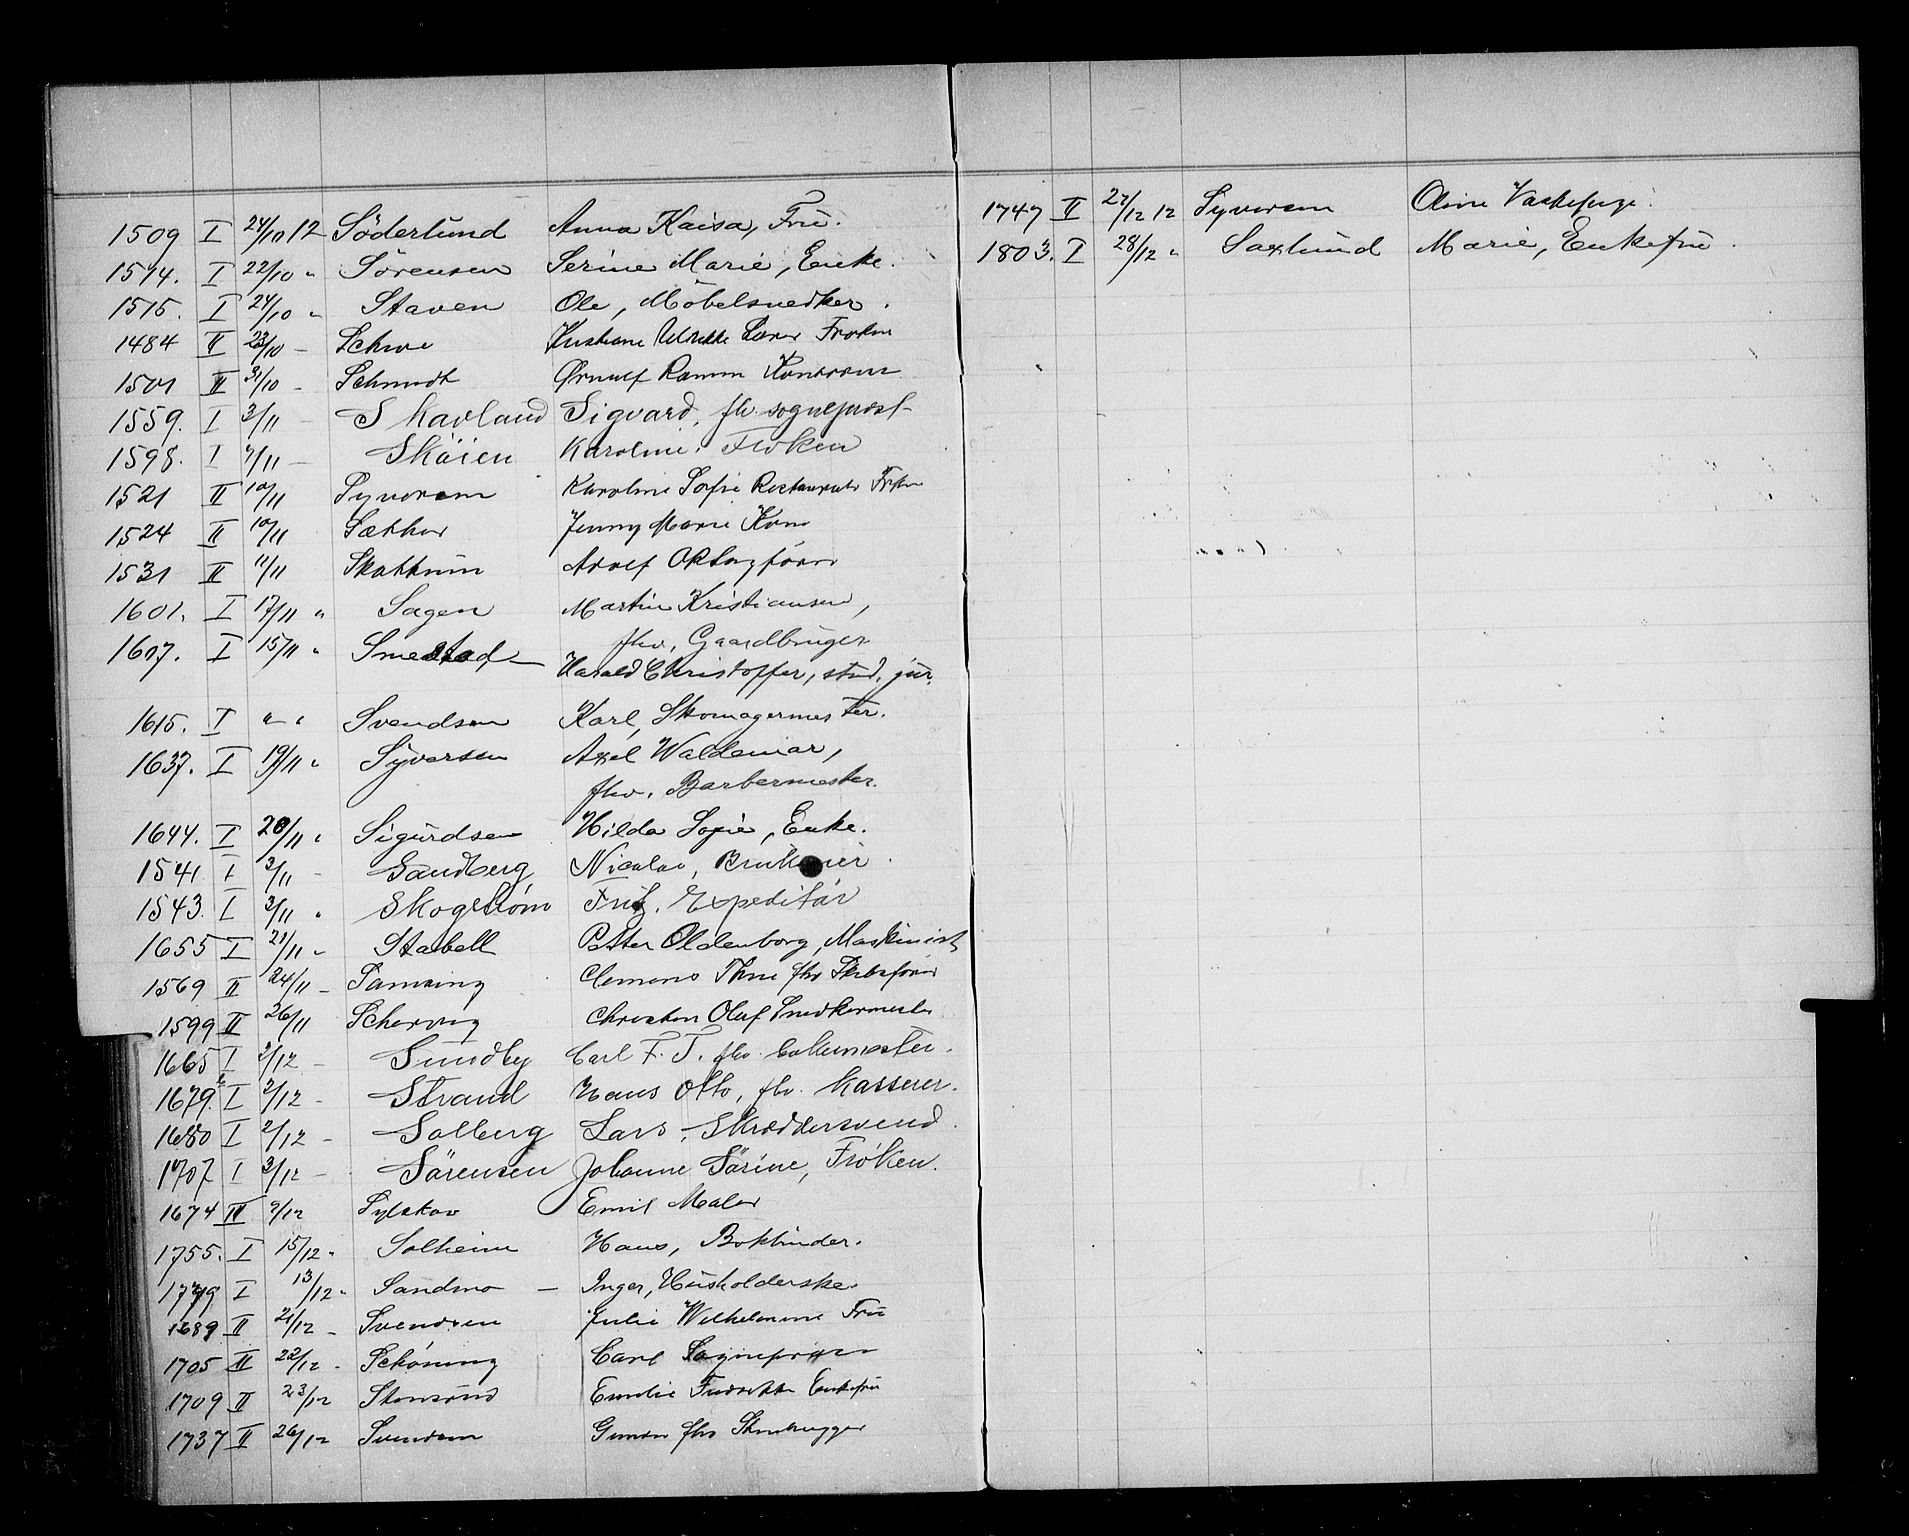 1509 I 24/10 12 Söderlund Anna Kaisa, Fru.
1514. I 22/10 " Sörensen Serine Marie, Enke.
1515. I 24/10 " Staven Ole, Möbelsnedker.
1484 II 23/10 - Schive Kristiane Ulrikke Frøken
1501 II 31/10 - Schmidt Ørnulf Ramm
1559. I 3/11 - Skavland Sigvard, fhv. sogneprest
1598. I 7/11 - Skøien Karoline. Frøken
1521 II 10/11 Syversen Karoline Sofie Frøken
1524 II 10/11 Sæther Jenny Marie Kone
1531 II 11/11 Skattum Adolf
1601. I 17/11 " Sagen Martin Kristiansen,
fhv. Gaardbruger
1607. I 15/11 " Smestad - Harald Christoffer, stud. jur.
1615. I " " Svendsen Karl, Skomagermester.
1637. I 19/11 " Syversen Axel Waldemar,
fhv. Barbermester.
1644. I 20/11 " Sigurdsen Hilda Sofie, Enke.
1541 I 3/11 - Sandberg Nicolai,
1543. I 3/11 " Skogstrøm Fritz. Expeditør
1655 I 21/11 " Stabell Petter Oldenborg, Maskinist
1569 II 24/11 - Samsing Clemens fhv Skibsfører
1599 II 26/11 Scherving Christen Oluf Snedkermester
1665 I 2/12 - Sundby Carl F. T. fhv.
1679. I 2/12 - Strand Hans Otto, fhv. Kasserer.
1680 I 2/12 - Solberg Lars, Skræddersvend.
1707 I 3/12 - Sörensen Johanne Sörine, Frøken.
1674 II 9/12 Sylskov Emil Maler
1755. I 15/12 " Solheim Hans, Bokbinder.
1779 I 13/12 " Sandmo - Inger, Husholderske
1689 II 21/12 - Svendsen Julie Wilhelmine Fru
1705 II 22/12 - Schöning Carl Sogneprest
1709 II 23/12 Stensrud Emilie Fredrikke Enkefru
1737 II 26/12 Svendsen fhv Stenhugger
1747 II 27/12 12 Syversen Oline Vaskepige.
1803. I 28/12 " Saxlund Marie, Enkefru.